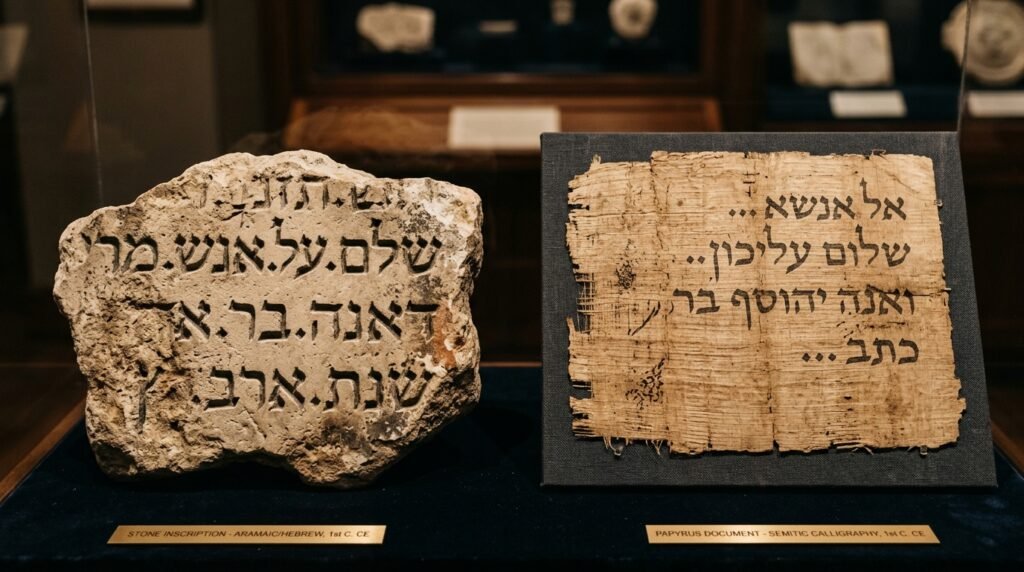 שלם.על.אנש.מרי
דאנה.בר.
שנת.ארב.
אל אנשא ...
שלום עליכון..
ואנה יהוסף בר
כתב ...
STONE INSCRIPTION - ARAMAIC/HEBREW, 1st C. CE
PAPYRUS DOCUMENT - SEMITIC CALLIGRAPHY, 1st C. CE